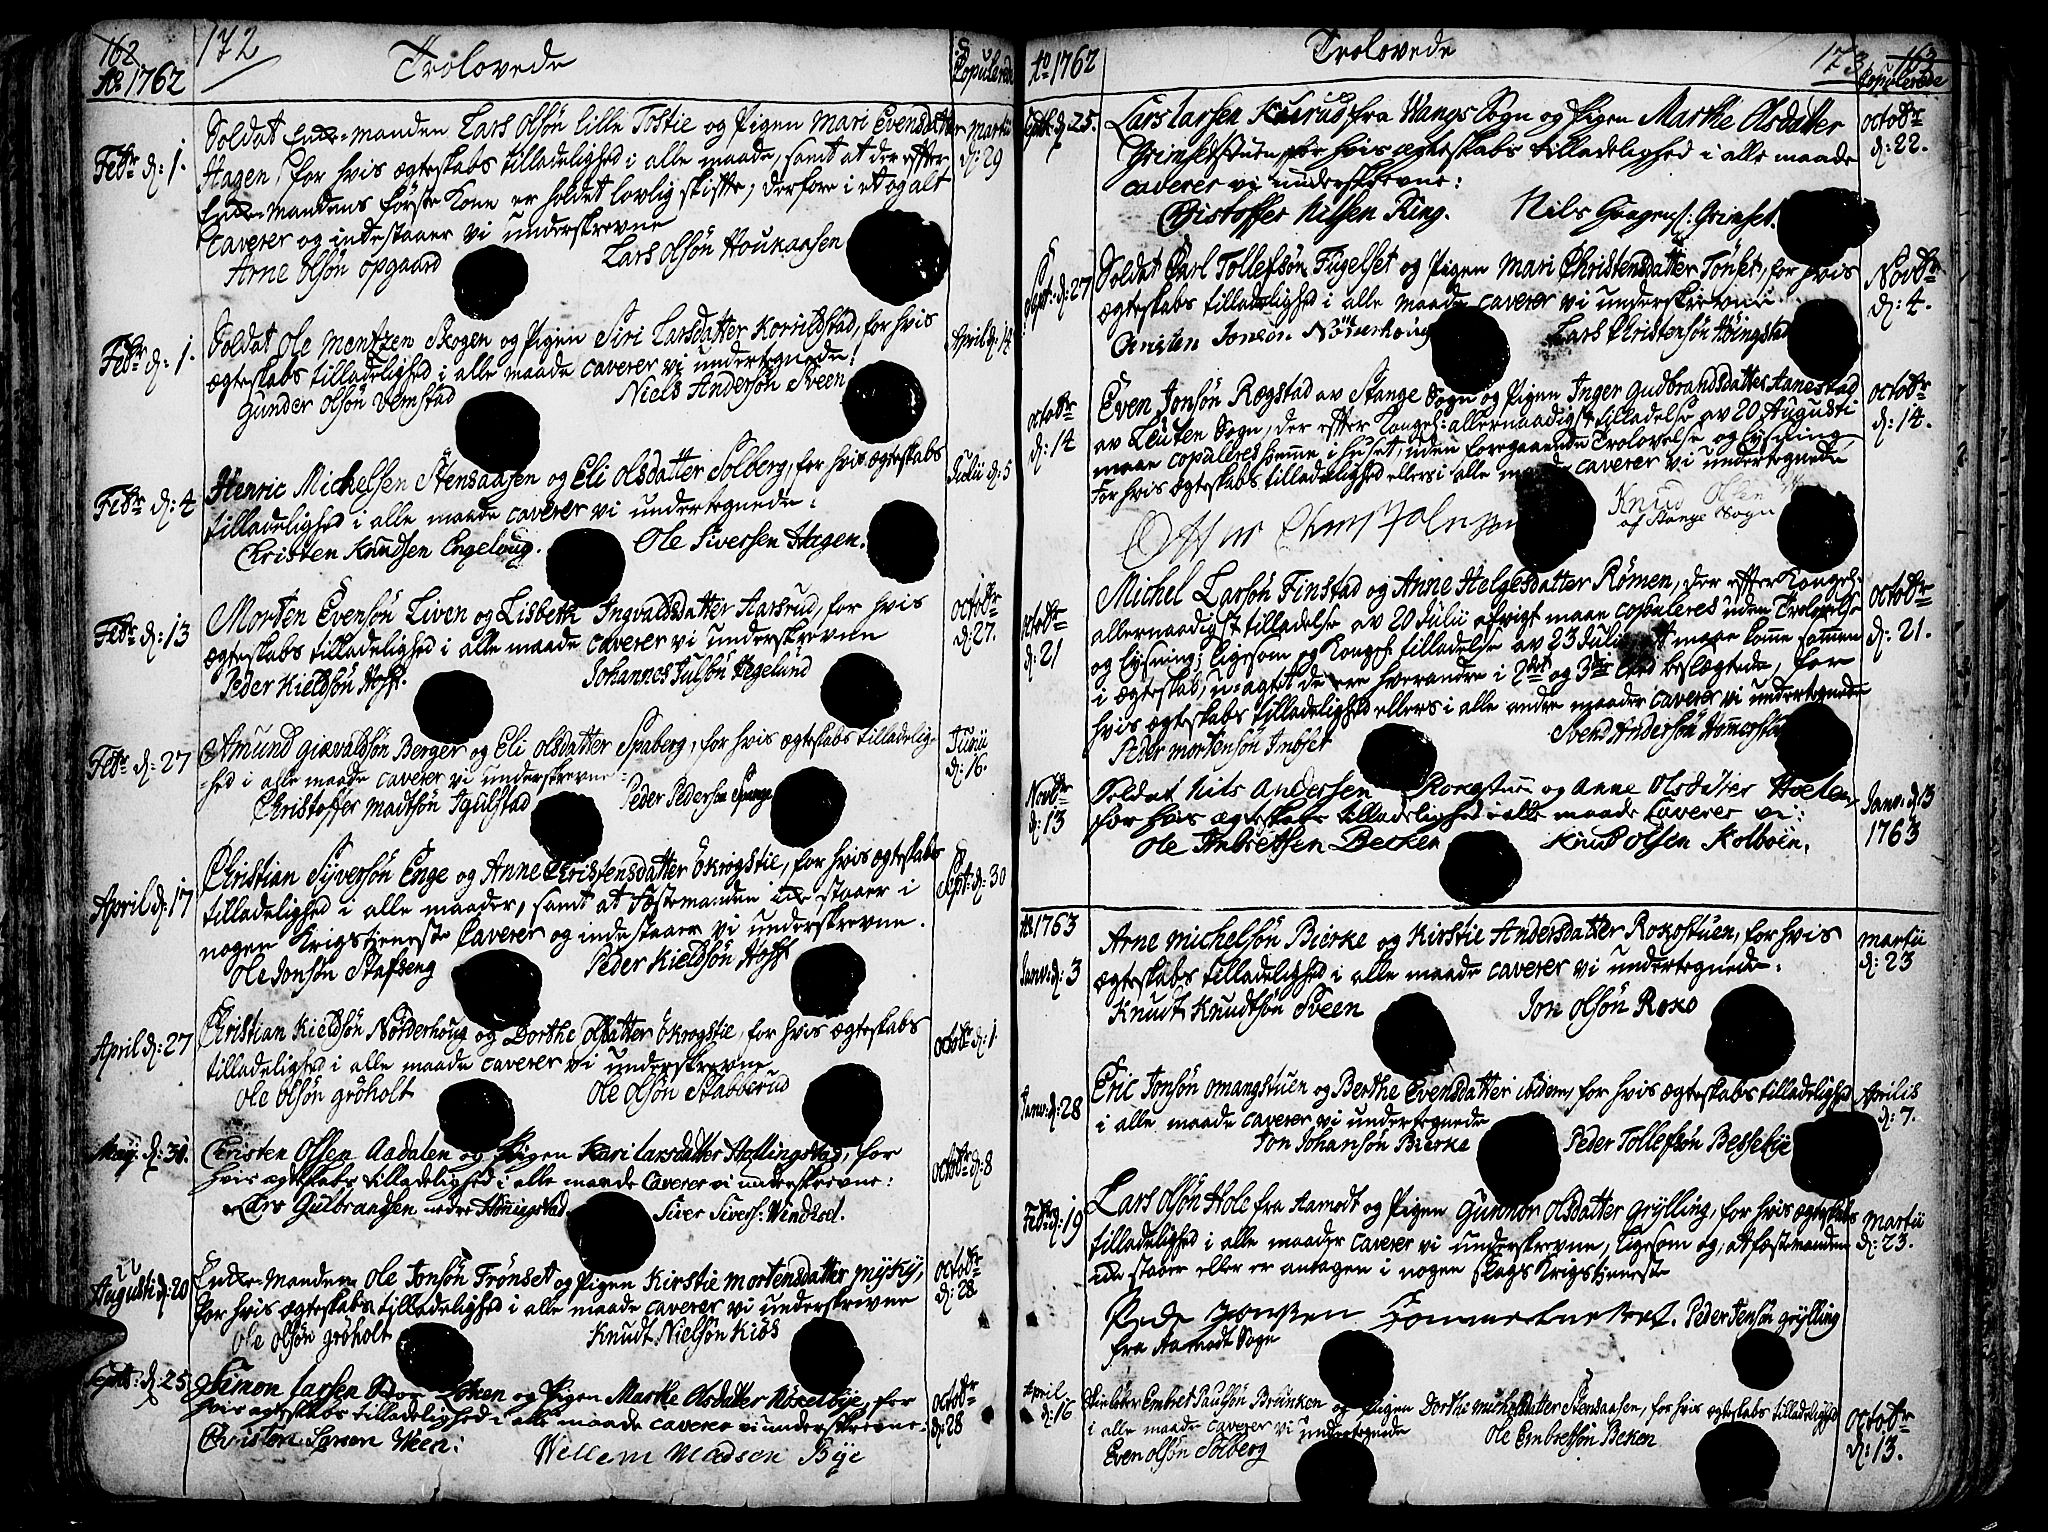 162 172
Trolovede
Copulerede
Ao 1762
Febr d: 1.
Soldat Enke-manden Lars Olsön Lille Tostie og Pigen Mari Evensdatter
Hagen, for hvis ægteskabs tilladelighed i alle maade, samt at der efter
Enke-mandens förste Kone er holdet lovlig skifte, derfore i et og alt
caverer og indestaaer vi underskrevne
Arne Olsön Opgaard Lars Olsön Hounaasen
Martii d: 29
Febr d: 1.
Soldat Ole Mentzen Skogen og Pigen Siri Larsdatter Korrilstad, for hvis
ægteskabs tilladelighed i alle maade caverer vi undertegnede:
Gunder Olsön Vemstad Niels Andersön Sveen
April d: 14
Febr d: 4
Henric Michelsen Stensaasen og Eli Olsdatter Solberg, for hvis ægteskabs
tilladelighed i alle maade caverer vi undertegnede:
Christen Knudsen Engeloug. Ole Siversen Hagen.
Julii d: 5
Febr d: 13
Morten Evensön Liven og Lisbeth Ingvaldsdatter Aarsrud, for hvis
ægteskabs tilladelighed i alle maade caverer vi underskrevne
Peder Kieldsön Hoff. Johannes Julsön Hegelund
octobr d: 27.
Febr d: 27
Amund Giævaldsön Berger og Eli Olsdatter Spaberg, for hvis ægteskabs tilladelig-
-hed i alle maade caverer vi underskrevne
Christoffer Madtsön Igulstad Peder Pedersön
Junii d: 16.
April d: 17
Christian Syversön Enge og Anne Christensdatter Ökrogstie, for hvis ægteskabs
tilladelighed i alle maader, samt at Fæstemanden ikke staaer i
nogen Krigstjeneste Caverer og indestaaer vi underskrevne.
Ole Jonsön Stafseng Peder Kieldsön Hoff
Sept: d: 30
April d: 27
Christian Kieldsön Norderhoug og Dorthe Olsdatter Ökrogstie, for hvis ægteskabs
tilladelighed i alle maade caverer vi underskrevne
Ole Olsön Gröholt Ole Olsön Stabberud
octobr d: 1.
Maij: d: 31.
Christen Olsen Aadalen og Pigen Kari Larsdatter Hollingstad, for
hvis ægteskabs tilladelighed i alle maade Caverer vi underskrevne:
Lars Gulbrandsen nedre Höningstad Siver Sivers: Windset.
octobr d: 8
22
Augusti d: 20
Enke-Manden Ole Jonsön Frönset og Pigen Kirstie Mortensdatter Myky,
for hvis ægteskabs tilladelighed i alle maade caverer vi underskrevne
Ole Olsön Gröholt Knudt Nielsön Kiös
octobr d: 28
Sept: d: 25
Simon Larsen Stor Löken og Pigen Marthe Olsdatter Noxelbye, for
hvis ægteskabs tilladelighed i alle maade caverer vi underskrevne.
Christen Larsen Ween: Willem Madsen Bye
octobr d: 28
Ao 1762
Trolovede
173 163
Copulerede
Sept: d: 25.
Lars Larsen Kusrud fra Wangs Sogn og Pigen Marthe Olsdatter
Grimsetstuen, for hvis ægteskabs tilladelighed i alle maade
caverer vi underskrevne:
Christoffer Nilssen Ring. Nils Gaagens: Grimset.
octobr d: 22.
Sept: d: 27
Soldat Carl Tollefsön Fugelset og Pigen Mari Christensdatter Tönset, for hvis
ægteskabs tilladelighed i alle maade caverer vi underskrevne
Christen Jonsön Nöderhoug Lars Christensön Höingstad
Novbr d: 4.
octobr d: 14
Even Jonsön Rogstad av Stange Sogn og Pigen Inger Gudbrandsdatter Aanestad
av Leuten Sogn, der efter Kongel: allernaadigste tilladelse av 20 Augusti
maae copuleres hiemme i huset, uden foregaaende Trolovelse og Lysning
for hvis ægteskabs tilladelighed ellers i alle maade caverer vi undertegnede
Knud Olsen
af Stange Sogn
octobr d: 14.
octobr d: 21
Michel Larsön Finstad og Anne Helgesdatter Römen, der efter Kongel:
allernaadigst tilladelse av 20 Julii afvigt maae copuleres uden Trolovelse
og Lysning; ligesom og Kongel: tilladelse av 23 Julii at maae komme sammen
i ægteskab, u-agtet de ere hverandre i 2det og 3die Leed beslægtede, for
hvis ægteskabs tilladelighed ellers i alle andre maader caverer vi undertegnede
Peder Mortensön Imset Svend Andersön Hommerstad
octobr d: 21.
Novbr d: 13
Soldat Nils Andersen Roxostuen og Anne Olsdatter Hoelen
for hvis ægteskabs tilladelighed i alle maade Caverer vi:
Ole Embretsen Becken Knud Olsen Kolboen.
Janv: d: 13 1763
Ao 1763
Janv: d: 3
Arne Michelsön Bierke og Kirstie Andersdatter Roxostuen, for hvis
ægteskabs tilladelighed i alle maade caverer vi undertegnede.
Knudt Knudtsön Sveen Jon Olsön Roxo
Martii d: 23
Janv: d: 28
Eric Jonsön Omangstuen og Berthe Evensdatter ibidem, for hvis ægteskabs tilladelighed
i alle maade caverer vi undertegnede
Jon Johansön Bierke Peder Tollefsön Bessebye
Aprilis d: 7.
Febr d: 19
Lars Olsön Hole fra Aamodt og Pigen Gunnor Olsdatter Grylling, for hvis ægteskabs
tilladelighed i alle maader caverer vi underskrevne, ligesom og, at fæstemanden
ikke staaer eller er antagen i nogen slags Krigstjeneste
Peder Jensön Grylling
fra Aamodt Sogn
Martii d: 23.
April d: 16
Embret Paulsön Brænken og Pigen Dorthe Michelsdatter Stensaasen, for hvis ægteskabs tilladelighed
i alle maade caverer vi undertegnede
Even Olsön Solberg Ole Embretsön Beken
octobr d: 13.